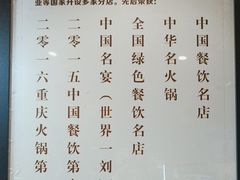 业等国家开设多家分店。先后荣获：
中国餐饮名店
中华名火锅
全国绿色餐饮名店
中国名宴（世界一刘
二零一五中国餐饮第
二零一六重庆火锅第